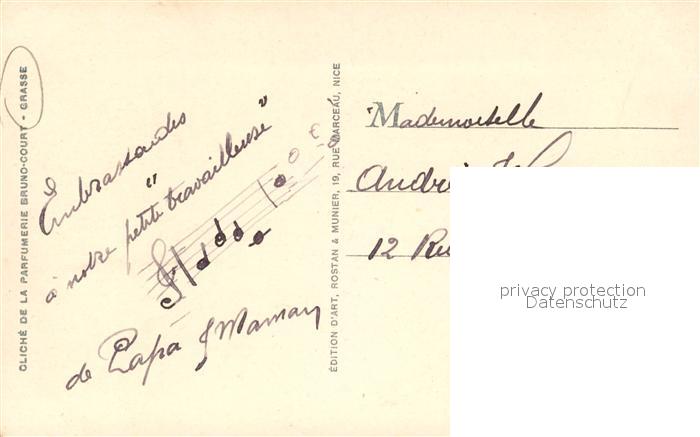 CLICHÉ DE LA PARFUMERIE BRUNO-COURT - GRASSE
Embrassades
à notre petite "travailleuse"
de Papa & Maman
ÉDITION D'ART, ROSTAN & MUNIER, 19, RUE MARCEAU, NICE
Mademoiselle
12
privacy protection
Datenschutz